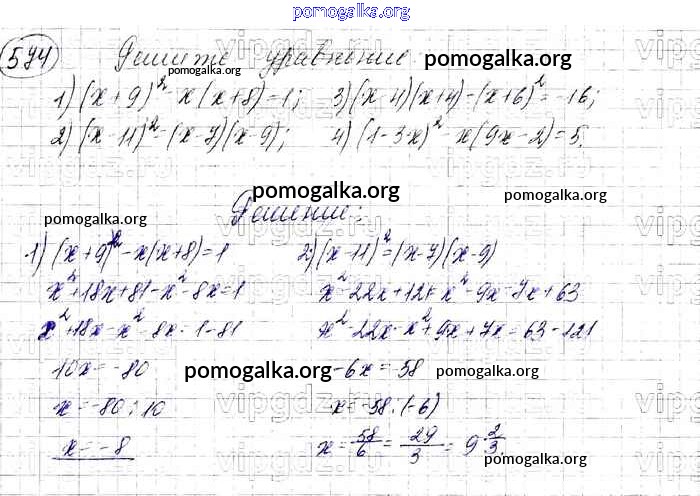 pomogalka.org
574 Решите уравнение
1) (x+9)² - x(x+8) = 1; 3) (x-4)(x+4) - (x+6)² = -16;
2) (x-11)² = (x-7)(x-9); 4) (1-3x)² - x(9x-2) = 5.
pomogalka.org
pomogalka.org
pomogalka.org
pomogalka.org
Решение:
1) (x+9)² - x(x+8) = 1
x² + 18x + 81 - x² - 8x = 1
x² + 18x - x² - 8x = 1 - 81
10x = -80
x = -80 : 10
x = -8
2) (x-11)² = (x-7)(x-9)
x² - 22x + 121 = x² - 9x - 7x + 63
x² - 22x - x² + 9x + 7x = 63 - 121
-6x = 58
x = -58 : (-6)
x = 58/6 = 29/3 = 9 2/3.
pomogalka.org
pomogalka.org
pomogalka.org